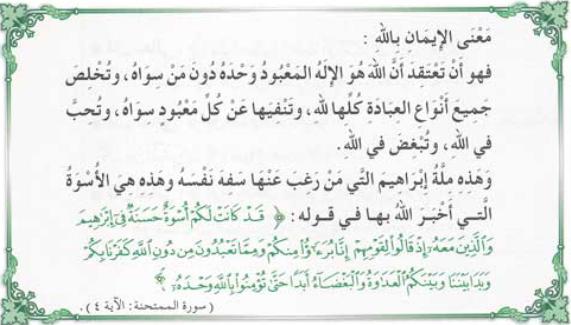 مَعْنَى الإِيمَانِ بِاللهِ :
فهو أَنْ تَعْتَقِدَ أَنَّ اللهَ هُوَ الإِلَهُ المَعْبُودُ وَحْدَهُ دُونَ مَنْ سِوَاهُ ، وتُخْلِصَ
جَمِيعَ أَنْوَاعِ العِبَادَةِ كُلَّهَا لله ، وَتَنْفِيهَا عَنْ كُلِّ مَعْبُودٍ سِوَاهُ ، وتُحِبَّ
في اللهِ ، وتُبْغِضَ في اللهِ .
وَهَذِهِ مِلَّةُ إِبْرَاهِيمَ التَّي مَنْ رَغِبَ عَنْهَا سَفِهَ نَفْسَهُ وهَذِهِ هِيَ الأُسْوَةُ
الَّتِي أَخْبَرَ اللهُ بها في قوله : ﴿ قَدْ كَانَتْ لَكُمْ أُسْوَةٌ حَسَنَةٌ فِي إِبْرَاهِيمَ
وَالَّذِينَ مَعَهُ إِذْ قَالُوا لِقَوْمِهِمْ إِنَّا بُرَءَاؤُا مِنكُمْ وَمِمَّا تَعْبُدُونَ مِن دُونِ اللَّهِ كَفَرْنَا بِكُمْ
وَبَدَا بَيْنَنَا وَبَيْنَكُمُ الْعَدَاوَةُ وَالْبَغْضَاءُ أَبَدًا حَتَّى تُؤْمِنُوا بِاللَّهِ وَحْدَهُ ﴾
( سورة الممتحنة : الآية ٤ ) .